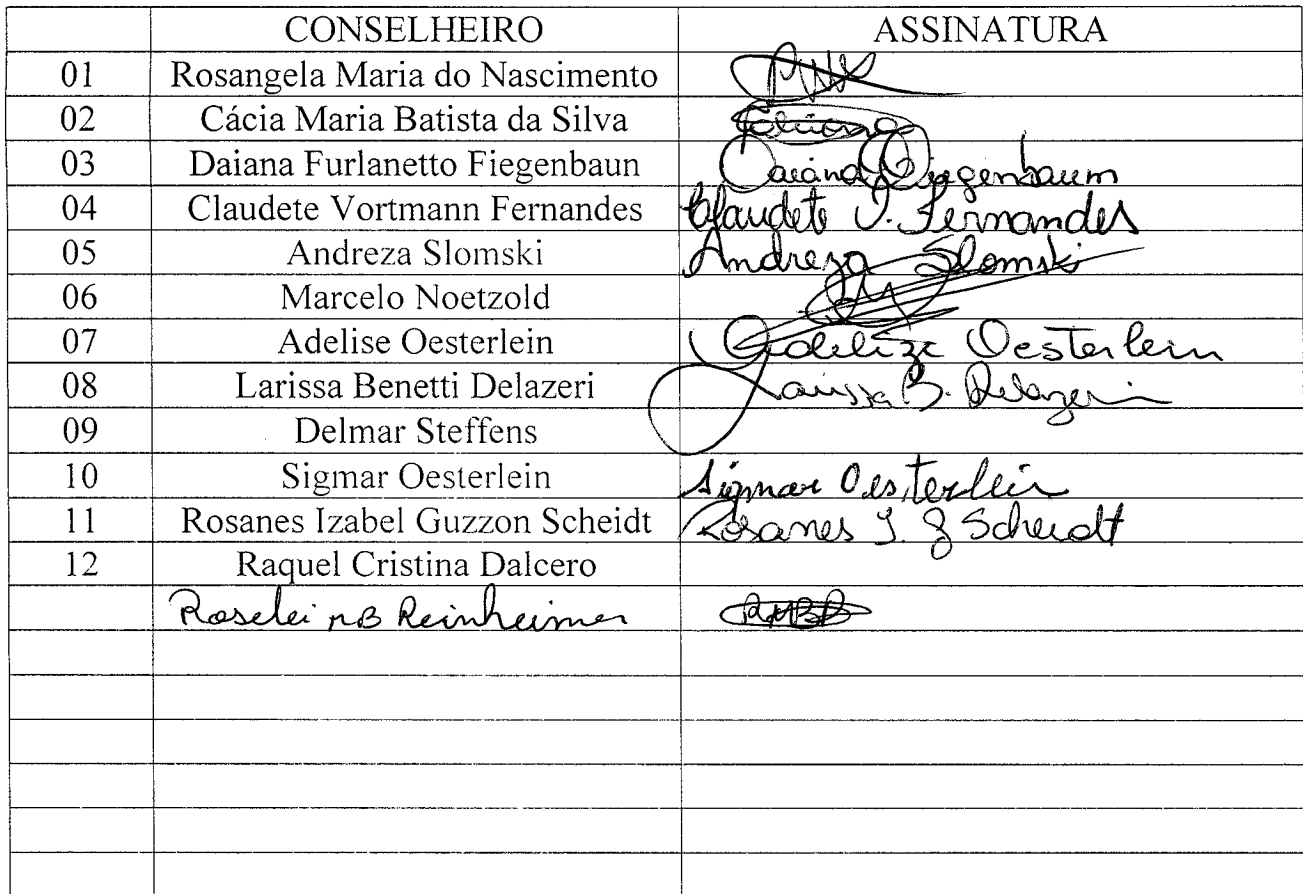 CONSELHEIRO ASSINATURA
01 Rosangela Maria do Nascimento
02 Cácia Maria Batista da Silva
03 Daiana Furlanetto Fiegenbaun Daiana Fiegenbaum
04 Claudete Vortmann Fernandes Claudete V. Fernandes
05 Andreza Slomski Andreza Slomski
06 Marcelo Noetzold
07 Adelise Oesterlein Adelize Oesterlein
08 Larissa Benetti Delazeri Larissa B. Delazeri
09 Delmar Steffens
10 Sigmar Oesterlein Sigmar Oesterlein
11 Rosanes Izabel Guzzon Scheidt Rosanes I. G Scheidt
12 Raquel Cristina Dalcero
Roselei MB Reinheimer RMBR